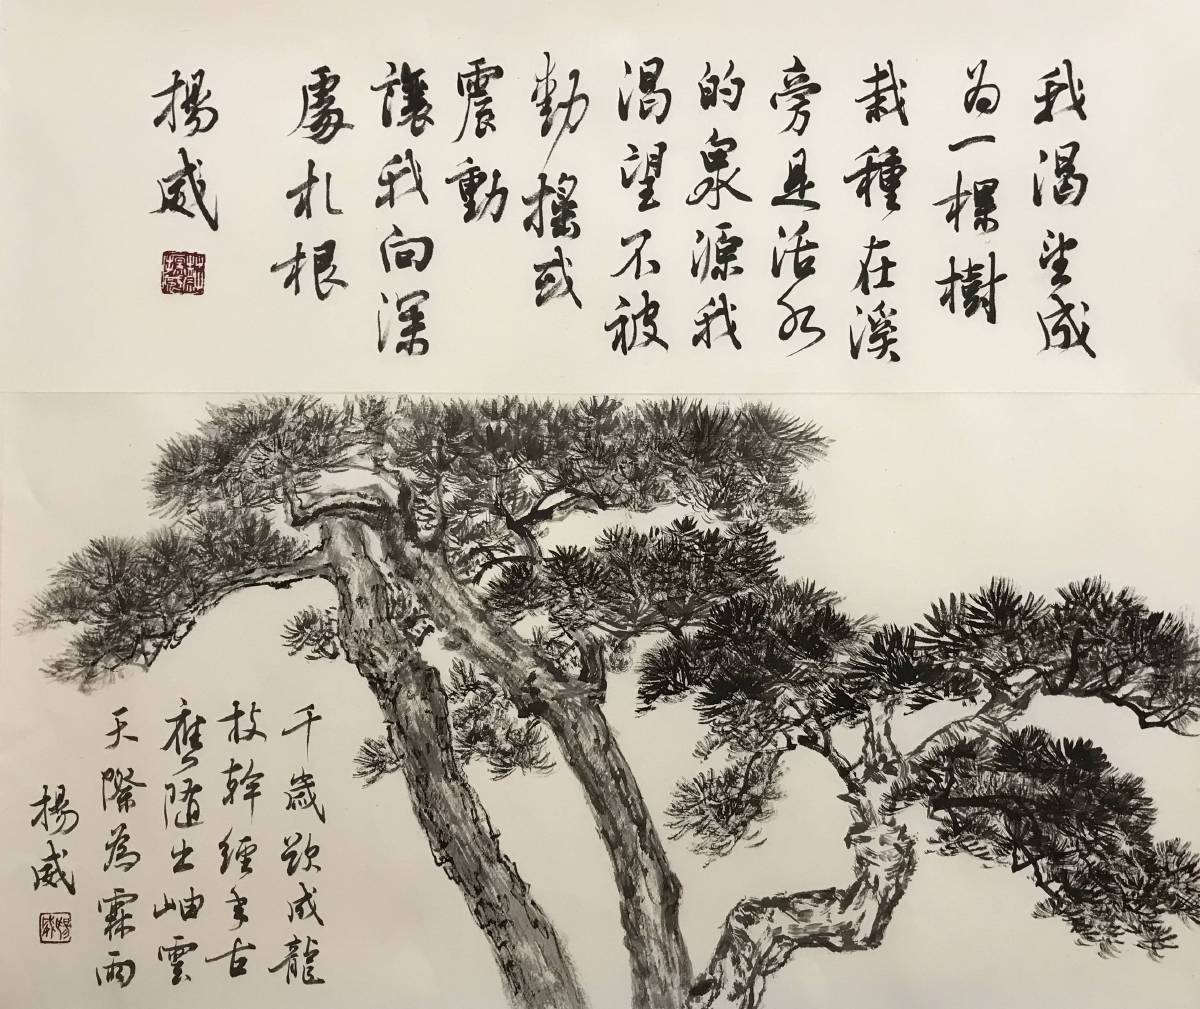 我渴望成
为一棵樹
栽種在溪
旁是活水
的泉源我
渴望不被
動搖或
震動
讓我向深
處札根
楊威
千歲欲成龍
枝幹經年古
應隨出岫雲
天際為霖雨
楊威